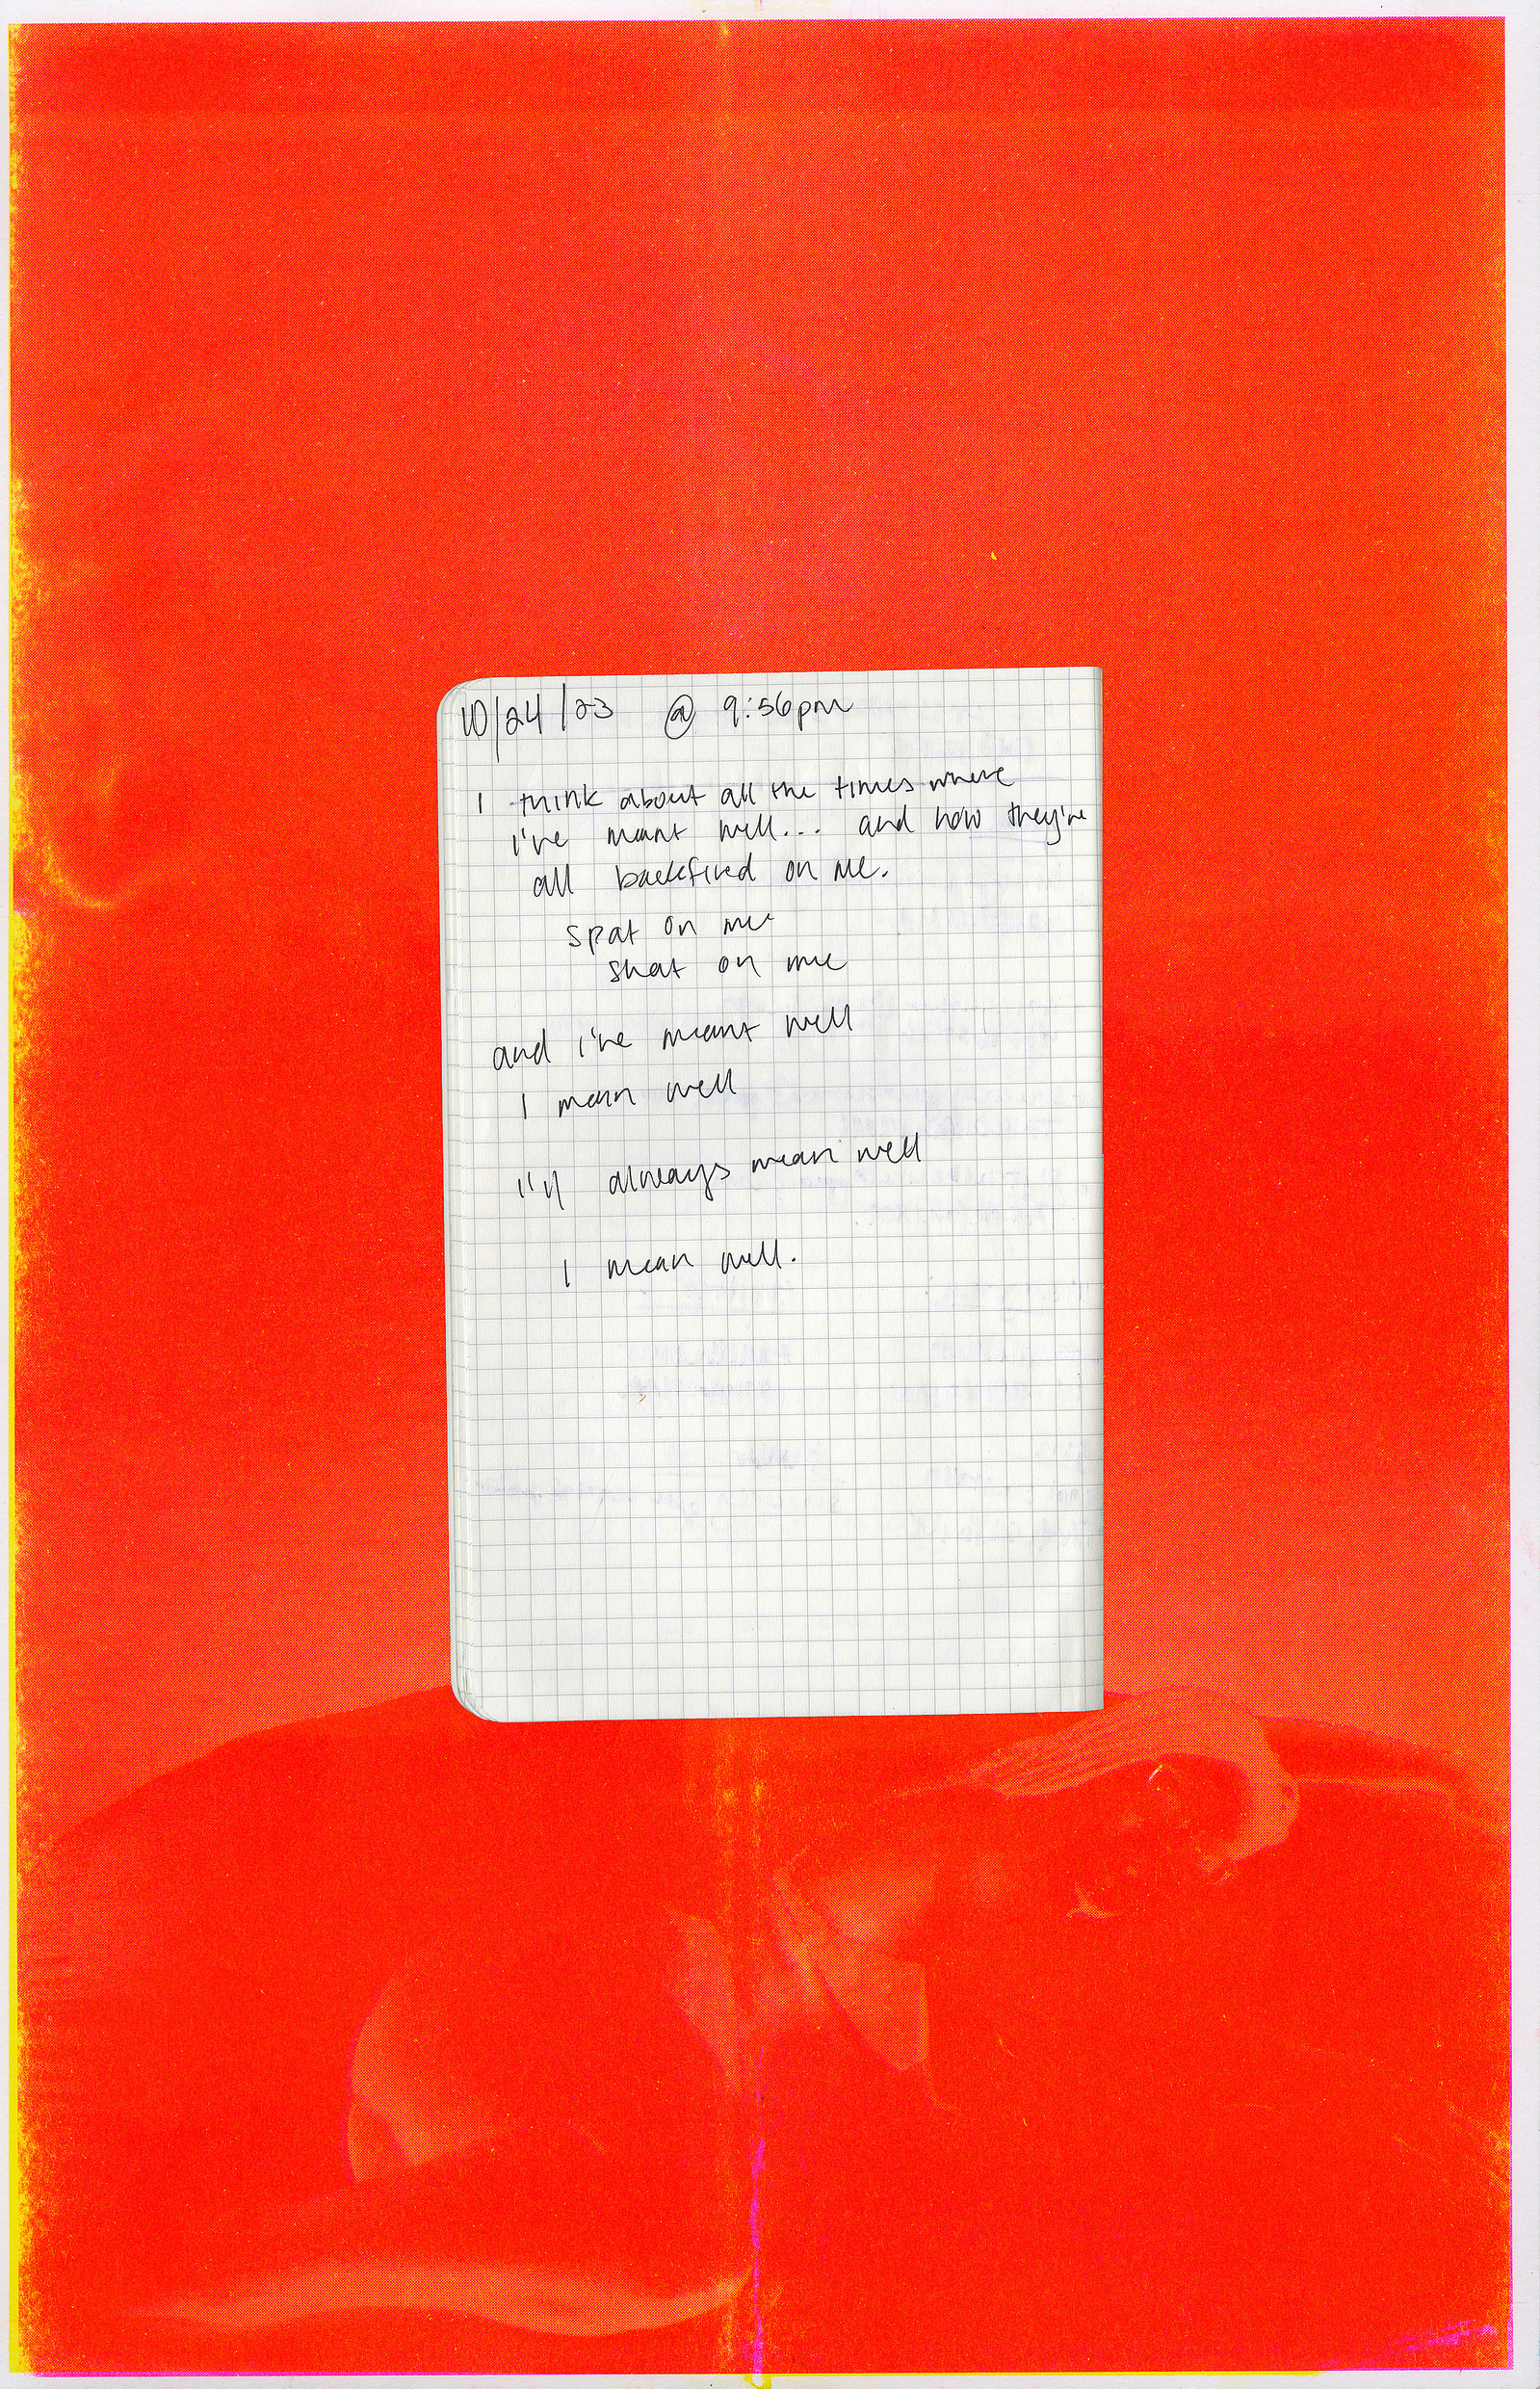 10/24/23 @ 9:56pm
I think about all the times where
i've meant well... and how they've
all backfired on me.
spat on me
shat on me
and i've meant well
I mean well
i'll always mean well
I mean well.